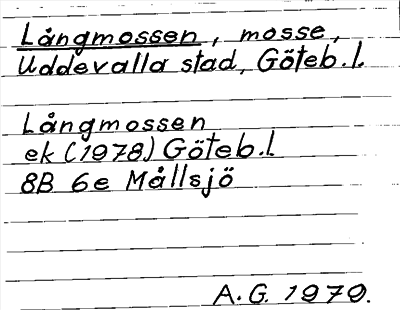 Långmossen, mosse,
Uddevalla stad, Göteb.l.
Långmossen
ek (1978) Göteb.l
8B 6e Mållsjö
A.G. 1979.